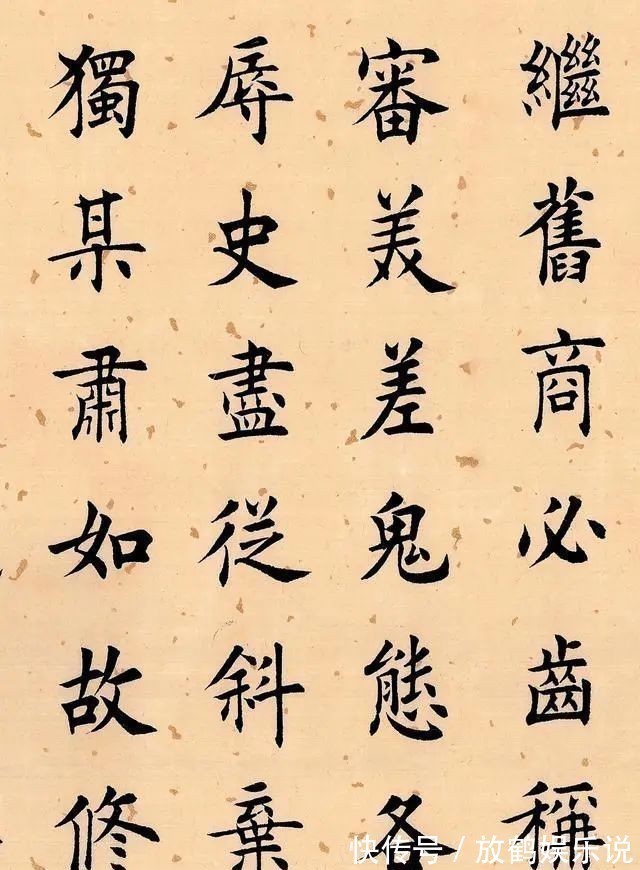 繼舊商必齒稱
審美差鬼態各
辱史盡従斜棄
獨某肅如故修
快传号 / 放鹤娱乐说